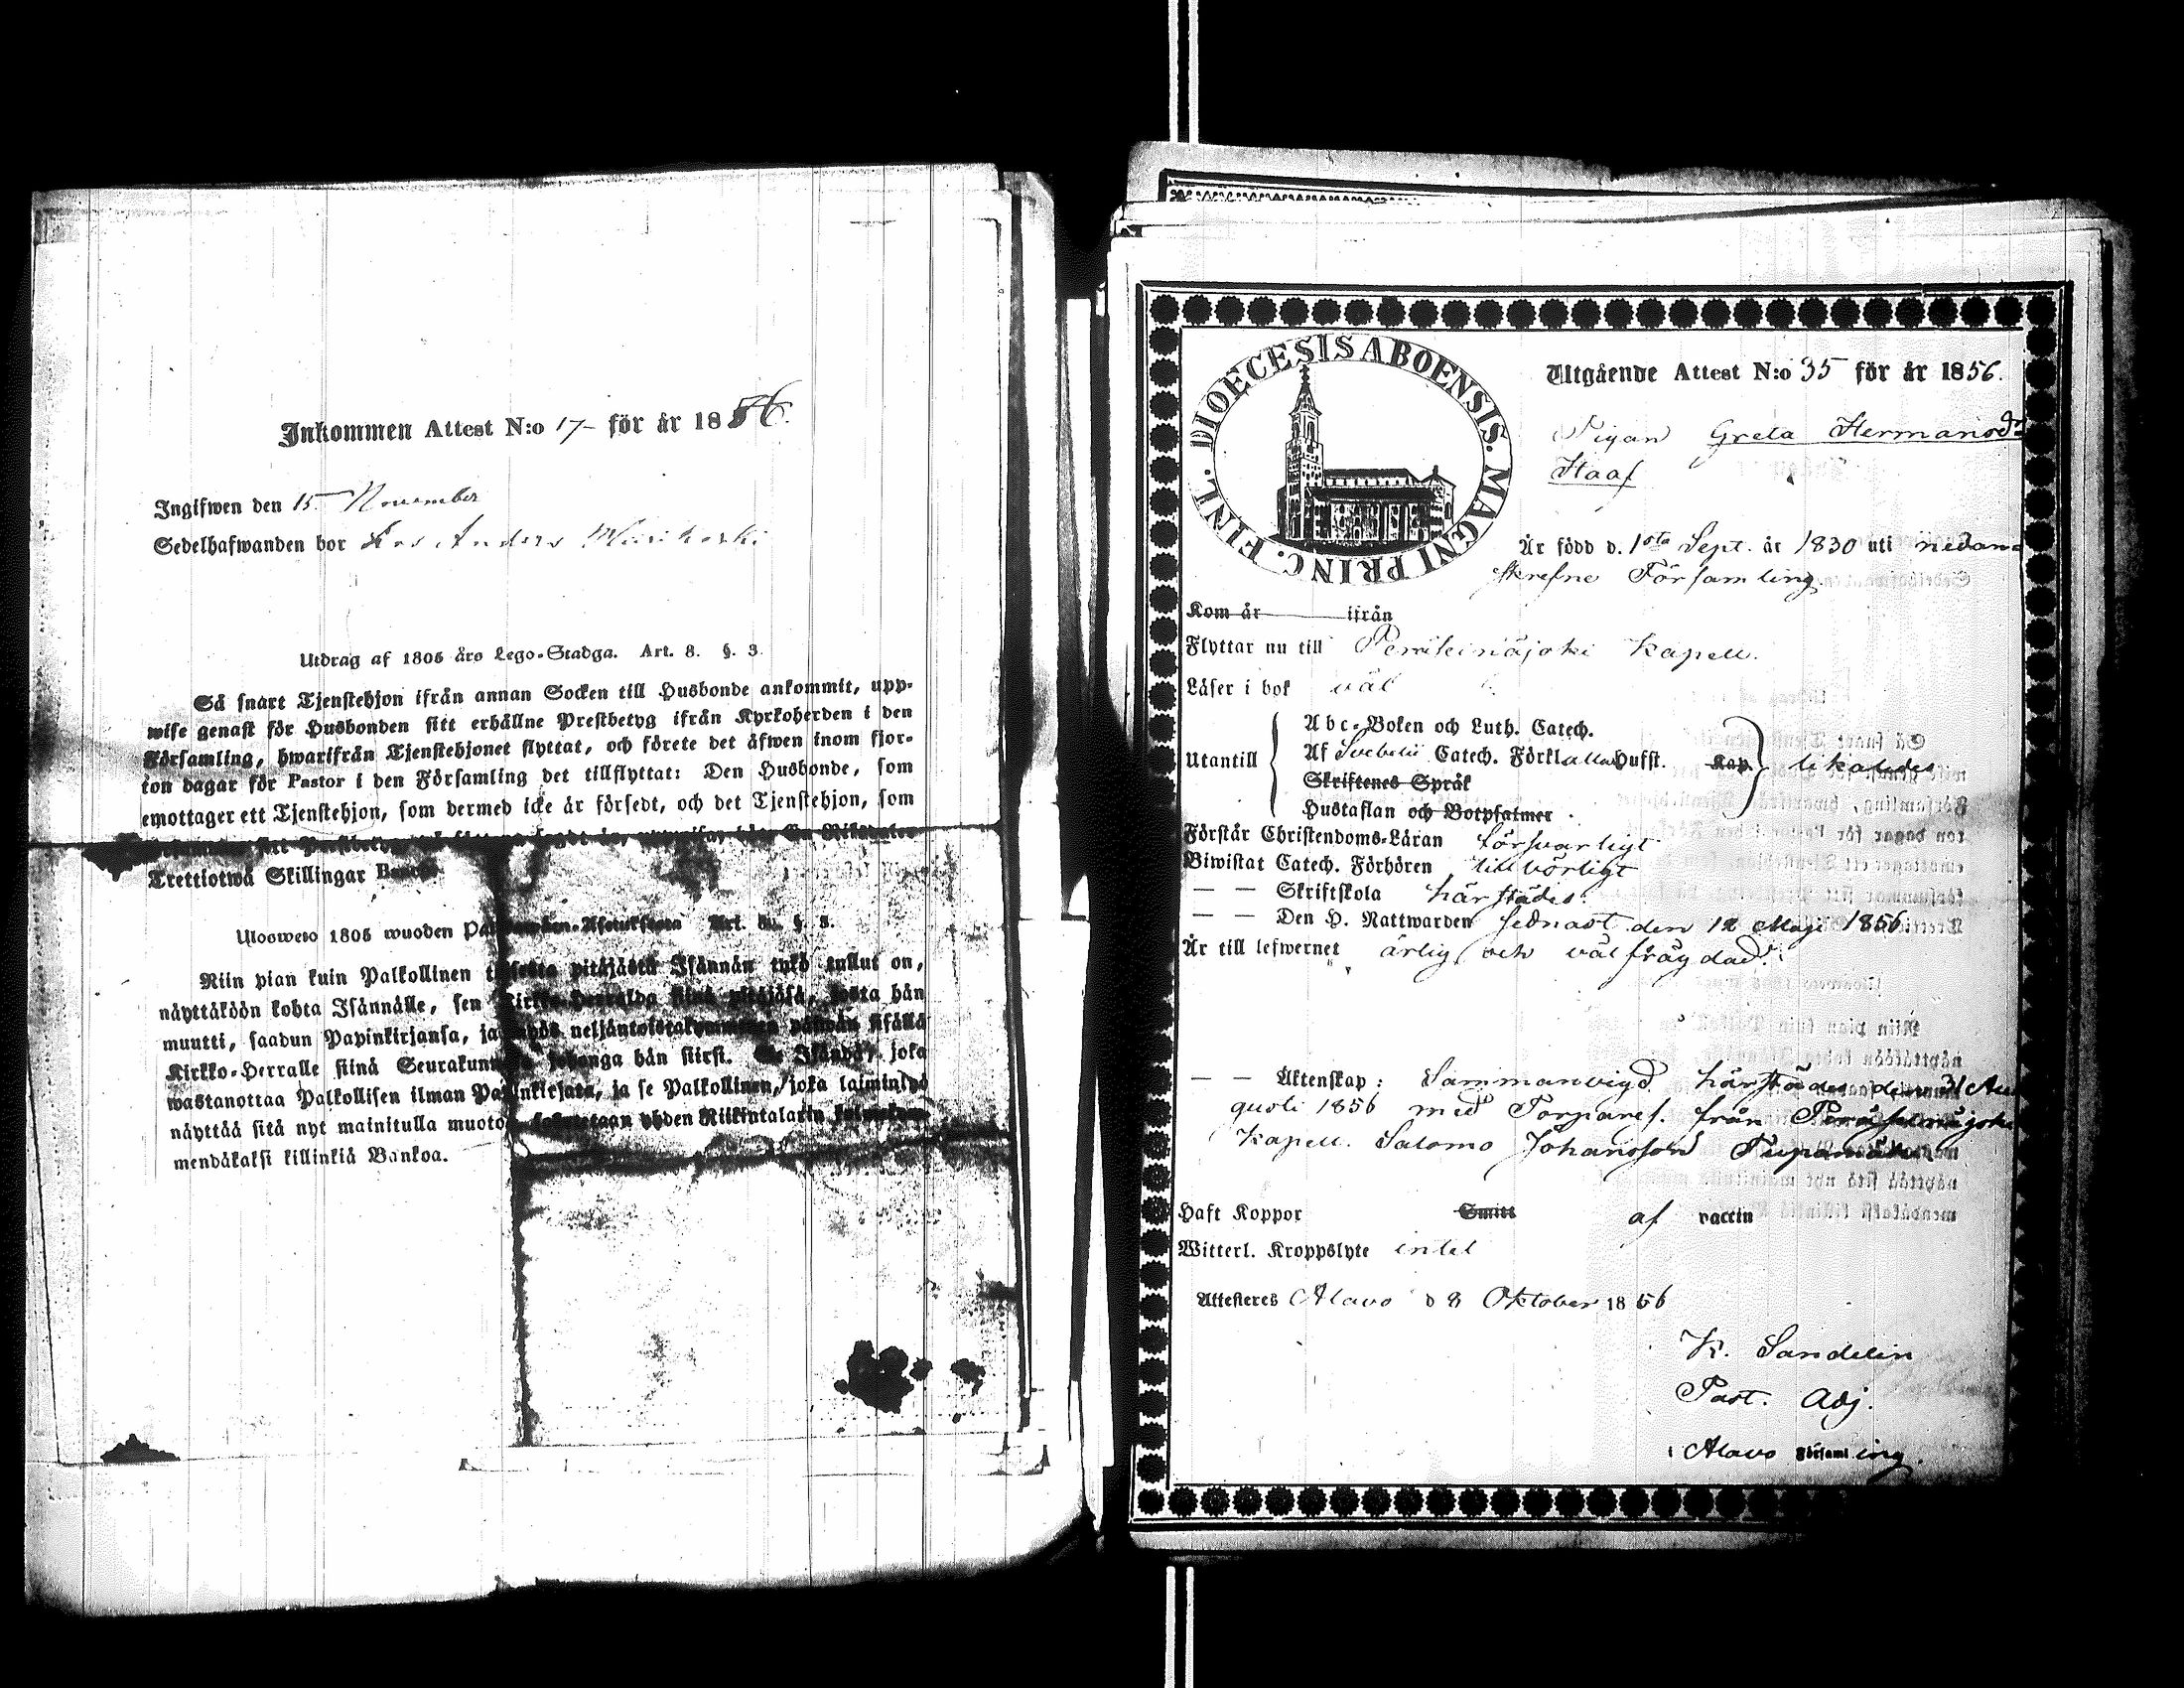 Inkommen Attest N:o 17 för år 1856.
Ingifwen den 15 November
Sedelhafwanden bor hos Anders
Utdrag af 1805 års Lego-Stadga. Art. 8. §. 3.
Så snart Tjenstehjon ifrån annan Socken till Husbonde ankommit, upp-
wise genast för Husbonden sitt erhållne Prestbetyg ifrån Kyrkoherden i den
Församling, hwarifrån Tjenstehjonet flyttat, och förete det äfwen inom fjor-
ton dagar för Pastor i den Församling det tillflyttat: Den Husbonde, som
emottager ett Tjenstehjon, som dermed icke är försedt, och det Tjenstehjon, som
sitt Riksdaler
Trettiotwå Skillingar Banco.
Ulosweto 1805 wuoden Art. 8. §. 3.
Niin pian kuin Palkollinen pitäjästä Isännän tykö tullut on,
näyttäköön kohta Isännälle, sen Kirkko-Herralda siinä pitäjäsä, josta hän
muutti, saadun Papinkirjansa, ja myös neljäntoistakymmenen päiwän sisällä
Kirkko-Herralle siinä Seurakunnasa, johonga hän siirsi. Se Isändä, joka
wastanottaa Palkollisen ilman Papinkirjata, ja se Palkollinen, joka laiminlyö
näyttää sitä nyt mainitulla muotoa, yhden Riikintalarin
mendäkaksi killinkiä Bankoa.
DIOECESIS ABOENSIS. MAGNI PRINC. FINL.
Utgående Attest N:o 35 för år 1856.
Pigan Greta Hermansdr
Staaf
Är född d. 1sta Sept. år 1830 uti nedan-
skrefne Församling.
Kom år ifrån
Flyttar nu till Peräseinäjoki Kapell.
Läser i bok väl
Abc-Boken och Luth. Catech.
Utantill Af Svebelii Catech. Förkl. alla Hufst. Kap. likaledes
Skriftenes Språk
Hustaflan och Botpsalmer.
Förstår Christendoms-Läran försvarligt
Biwistat Catech. Förhören tillbörligt
— — Skriftskola härstädes.
— — Den H. Nattwarden sednast den 12 Maji 1856.
Är till lefwernet ärlig och väl frägdad.
— — Äktenskap: Sammanvigd härstädes den Au-
gusti 1856 med Torpares. från Peräseinäjoki
Kapell. Salomo Johansson
Haft Koppor Smitt af vaccin
Witterl. Kroppslyte intet
Attesteres Alavo d 8 Oktober 1856
K. Sandelin
Past. Adj.
i Alavo Församling.